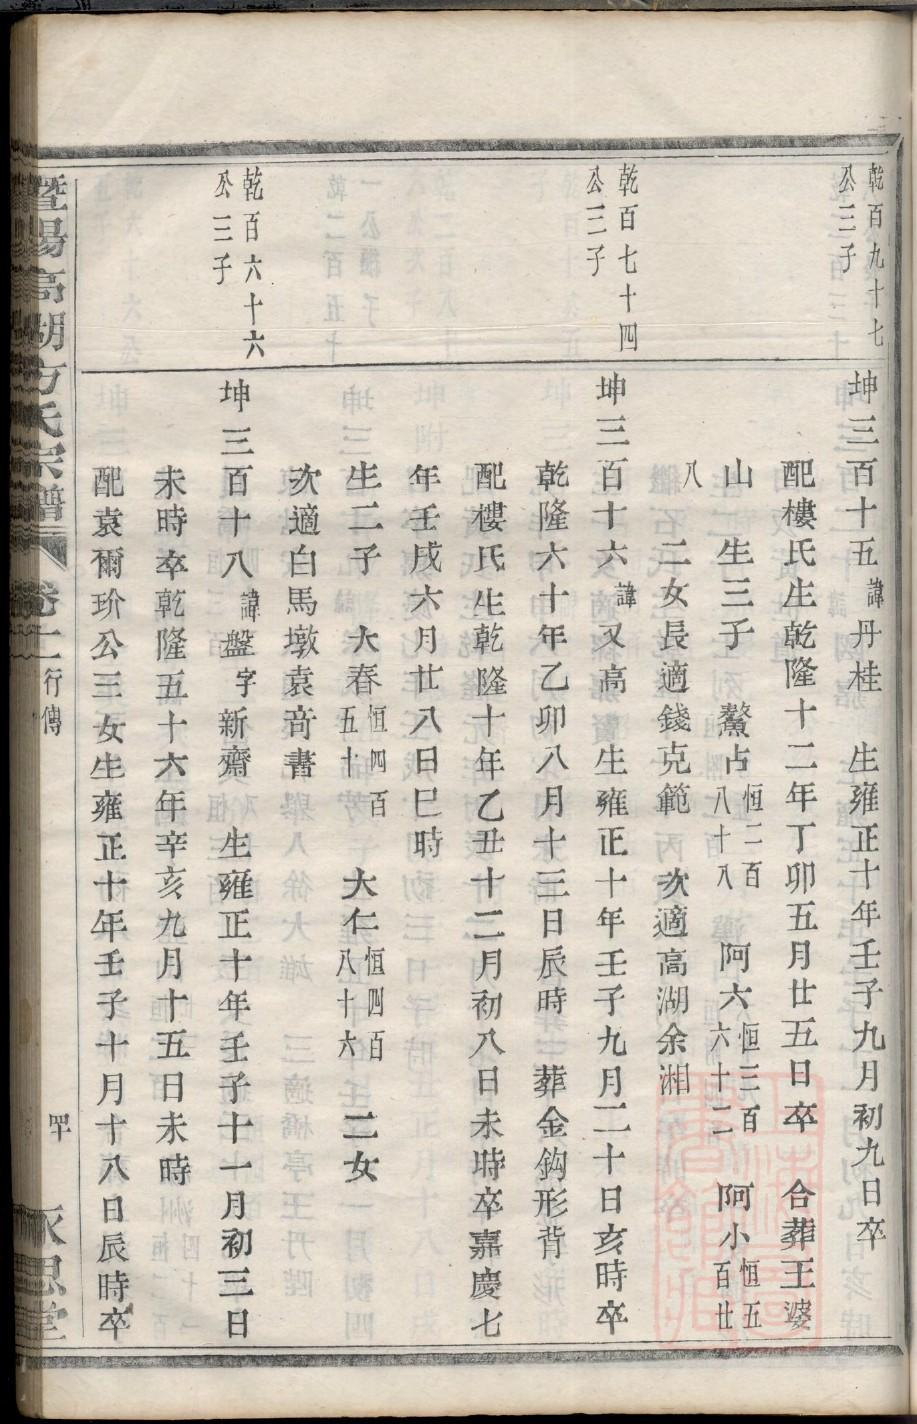 乾百九十七
公三子
坤三百十五諱丹桂 生雍正十年壬子九月初九日卒
配樓氏生乾隆十二年丁卯五月廿五日卒 合葬王婆
山 生三子 鰲占恒二百八十八 阿六恒三百六十二 阿小恒五百廿
八 二女長適錢克範 次適高湖余湘
乾百七十四
公三子
坤三百十六諱又高 生雍正十年壬子九月二十日亥時卒
乾隆六十年乙卯八月十三日辰時 葬金鈎形背
配樓氏生乾隆十年乙丑十二月初八日未時卒嘉慶七
年壬戌六月廿八日巳時
生二子 大春恒四百五十 大仁恒四百八十六 二女
次適白馬墩袁啻書
乾百六十六
公三子
坤三百十八諱盤字新齋 生雍正十年壬子十一月初三日
未時卒乾隆五十六年辛亥九月十五日未時
配袁爾玠公三女生雍正十年壬子十月十八日辰時卒
暨陽高湖方氏宗譜 卷十一 行傳 罕 永思堂